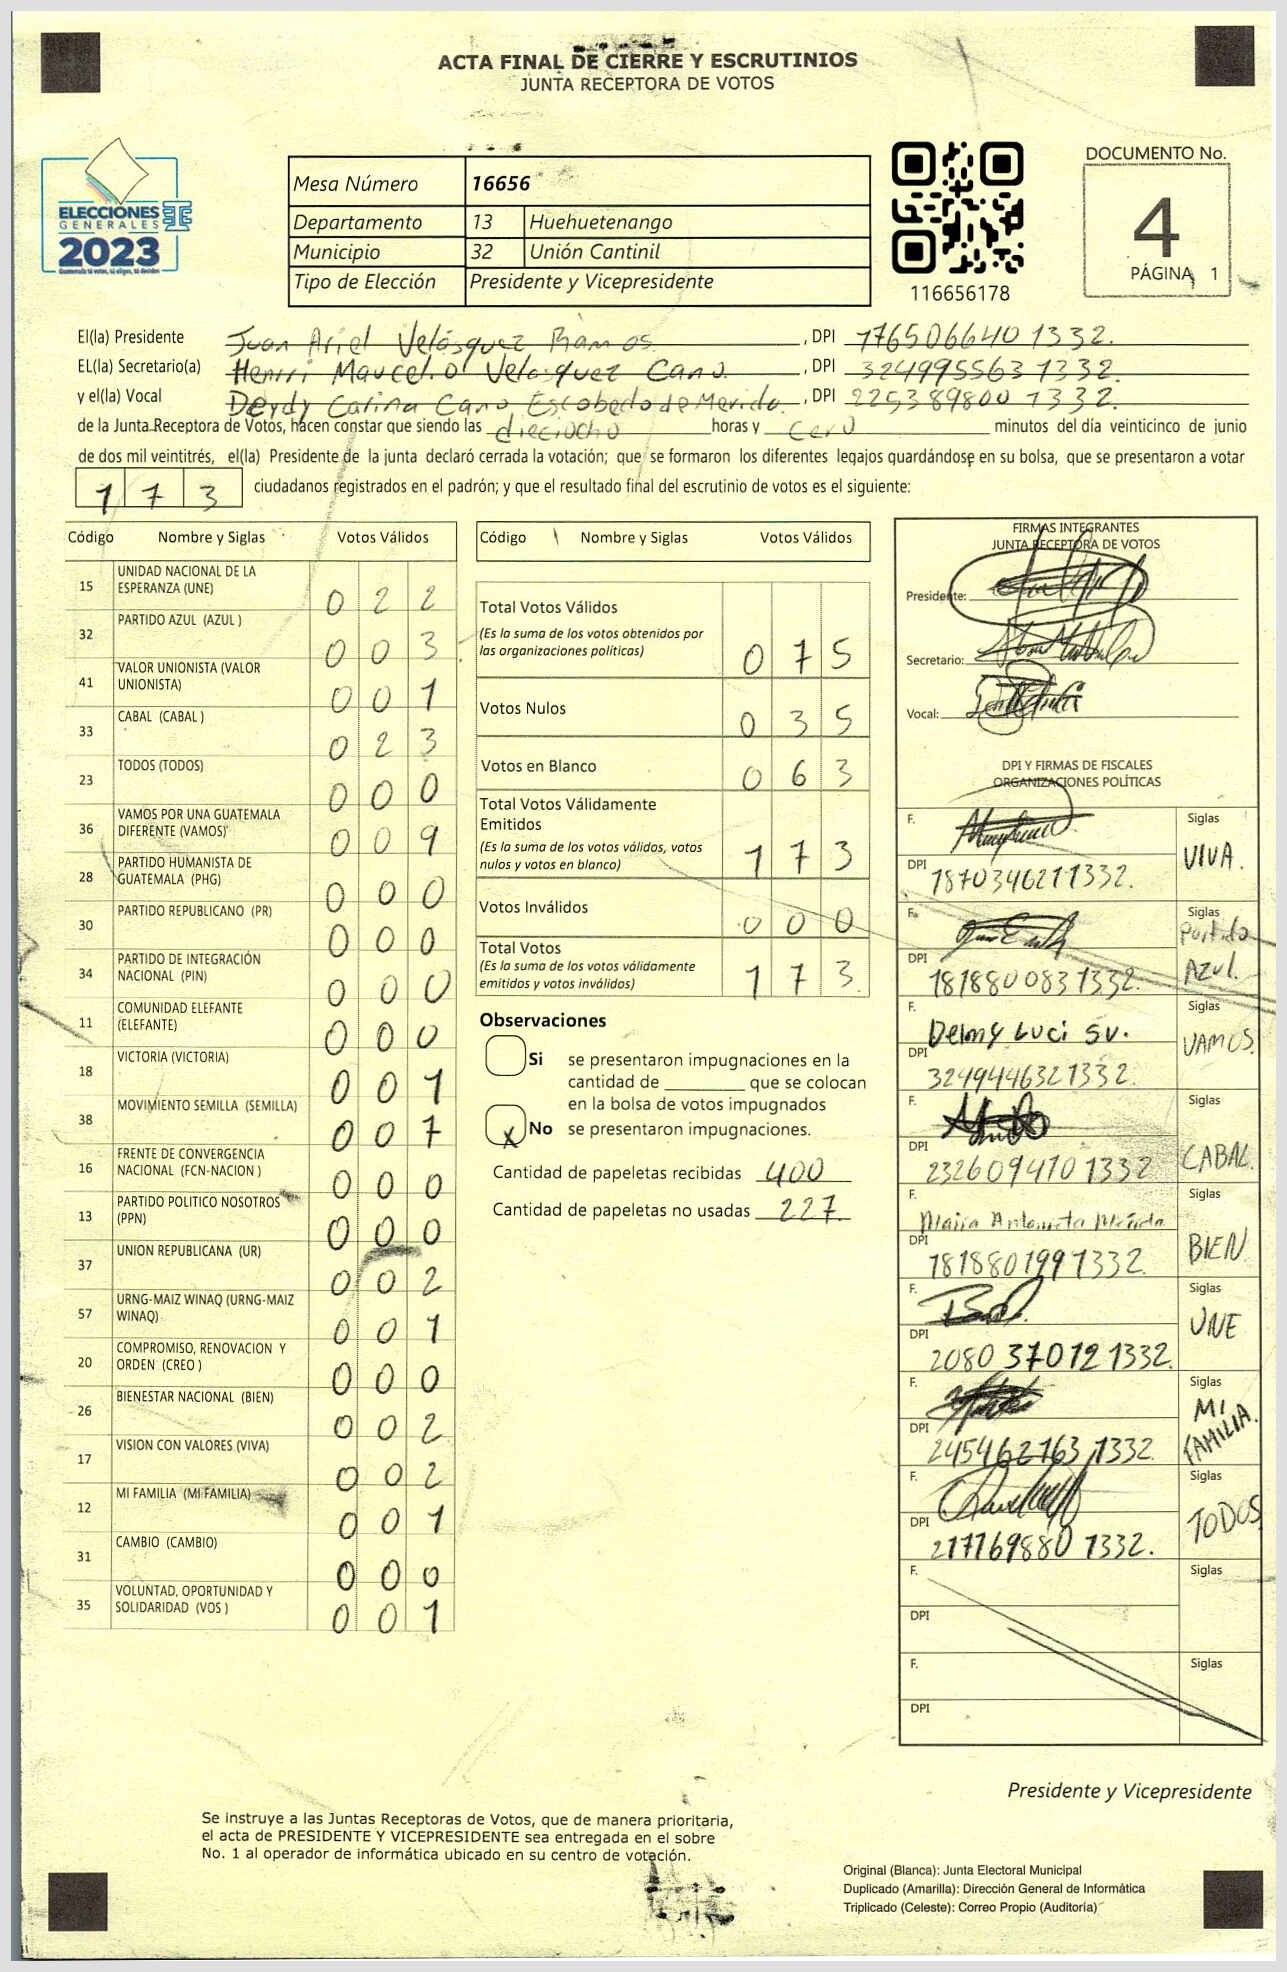 ACTA FINAL DE CIERRE Y ESCRUTINIOS
JUNTA RECEPTORA DE VOTOS
ELECCIONES
GENERALES
2023
Guatemala tú votas, tú eliges, tú decides
Mesa Número 16656
Departamento 13 Huehuetenango
Municipio 32 Unión Cantinil
Tipo de Elección Presidente y Vicepresidente
116656178
DOCUMENTO No.
4
PÁGINA 1
El(la) Presidente Juan Ariel Velásquez Ramos , DPI 776506640 1332.
EL(la) Secretario(a) Henrri Maucelio Velasquez Cano. , DPI 324995563 1332.
y el(la) Vocal Deydy Carina Cano Escobedo de Merida. , DPI 225389800 1332.
de la Junta Receptora de Votos, hacen constar que siendo las dieciocho horas y cero minutos del día veinticinco de junio
de dos mil veintitrés, el(la) Presidente de la junta declaró cerrada la votación; que se formaron los diferentes legajos guardándose en su bolsa, que se presentaron a votar
173 ciudadanos registrados en el padrón; y que el resultado final del escrutinio de votos es el siguiente:
Código Nombre y Siglas Votos Válidos
15 UNIDAD NACIONAL DE LA ESPERANZA (UNE) 022
32 PARTIDO AZUL (AZUL ) 003
41 VALOR UNIONISTA (VALOR UNIONISTA) 001
33 CABAL (CABAL ) 023
23 TODOS (TODOS) 000
36 VAMOS POR UNA GUATEMALA DIFERENTE (VAMOS) 009
28 PARTIDO HUMANISTA DE GUATEMALA (PHG) 000
30 PARTIDO REPUBLICANO (PR) 000
34 PARTIDO DE INTEGRACIÓN NACIONAL (PIN) 000
11 COMUNIDAD ELEFANTE (ELEFANTE) 000
18 VICTORIA (VICTORIA) 001
38 MOVIMIENTO SEMILLA (SEMILLA) 007
16 FRENTE DE CONVERGENCIA NACIONAL (FCN-NACION ) 000
13 PARTIDO POLITICO NOSOTROS (PPN) 000
37 UNION REPUBLICANA (UR) 002
57 URNG-MAIZ WINAQ (URNG-MAIZ WINAQ) 001
20 COMPROMISO, RENOVACION Y ORDEN (CREO ) 000
26 BIENESTAR NACIONAL (BIEN) 002
17 VISION CON VALORES (VIVA) 002
12 MI FAMILIA (MI FAMILIA) 001
31 CAMBIO (CAMBIO) 000
35 VOLUNTAD, OPORTUNIDAD Y SOLIDARIDAD (VOS ) 001
Código Nombre y Siglas Votos Válidos
Total Votos Válidos
(Es la suma de los votos obtenidos por
las organizaciones políticas) 075
Votos Nulos 035
Votos en Blanco 063
Total Votos Válidamente
Emitidos
(Es la suma de los votos válidos, votos
nulos y votos en blanco) 173
Votos Inválidos 000
Total Votos
(Es la suma de los votos válidamente
emitidos y votos inválidos) 173
Observaciones
Si se presentaron impugnaciones en la
cantidad de ________ que se colocan
en la bolsa de votos impugnados
X No se presentaron impugnaciones.
Cantidad de papeletas recibidas 400
Cantidad de papeletas no usadas 227
FIRMAS INTEGRANTES
JUNTA RECEPTORA DE VOTOS
Presidente:
Secretario:
Vocal:
DPI Y FIRMAS DE FISCALES
ORGANIZACIONES POLÍTICAS
F. Siglas
DPI 1870346211332. VIVA.
F. Siglas
DPI 1818800831332. Partido Azul.
F. Delmy Luci sv. Siglas
DPI 3249446321332. VAMOS.
F. Siglas
DPI 2326094101332 CABAL.
F. Maria Antonieta Mérida Siglas
DPI 1818801991332. BIEN
F. Siglas
DPI 2080 37012 1332. UNE
F. Siglas
DPI 245462163 1332. MI FAMILIA.
F. Siglas
DPI 217769880 1332. TODOS
F. Siglas
DPI
F. Siglas
DPI
Presidente y Vicepresidente
Se instruye a las Juntas Receptoras de Votos, que de manera prioritaria,
el acta de PRESIDENTE Y VICEPRESIDENTE sea entregada en el sobre
No. 1 al operador de informática ubicado en su centro de votación.
Original (Blanca): Junta Electoral Municipal
Duplicado (Amarilla): Dirección General de Informática
Triplicado (Celeste): Correo Propio (Auditoría)